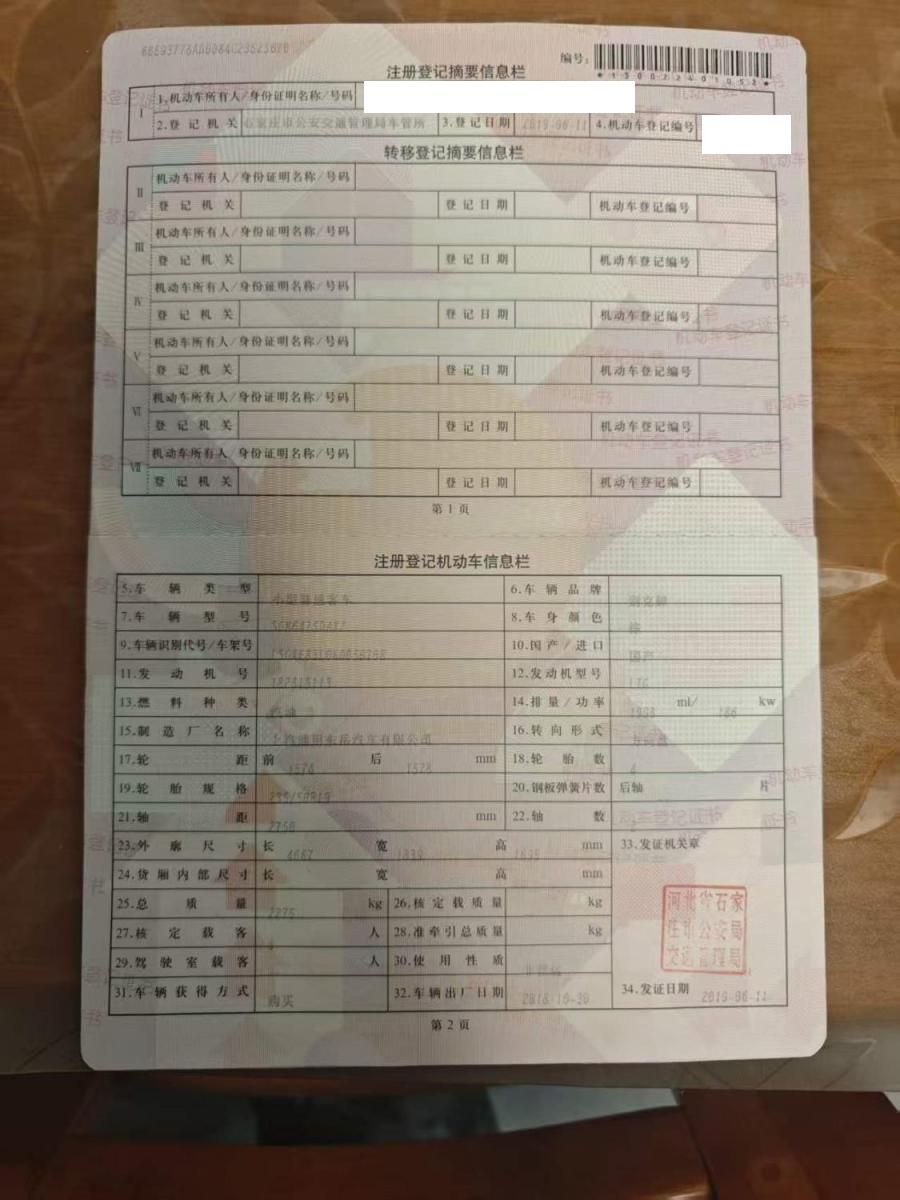 编号:
*130022401052*
注册登记摘要信息栏
I 1.机动车所有人/身份证明名称/号码
2.登记机关 石家庄市公安交通管理局车管所 3.登记日期 2019-06-11 4.机动车登记编号
转移登记摘要信息栏
II 机动车所有人/身份证明名称/号码
登记机关 登记日期 机动车登记编号
III 机动车所有人/身份证明名称/号码
登记机关 登记日期 机动车登记编号
IV 机动车所有人/身份证明名称/号码
登记机关 登记日期 机动车登记编号
V 机动车所有人/身份证明名称/号码
登记机关 登记日期 机动车登记编号
VI 机动车所有人/身份证明名称/号码
登记机关 登记日期 机动车登记编号
VII 机动车所有人/身份证明名称/号码
登记机关 登记日期 机动车登记编号
第1页
注册登记机动车信息栏
5.车辆类型 小型普通客车 6.车辆品牌 别克牌
7.车辆型号 8.车身颜色 棕
9.车辆识别代号/车架号 10.国产/进口 国产
11.发动机号 12.发动机型号 LTG
13.燃料种类 汽油 14.排量/功率 1998 ml/ 186 kw
15.制造厂名称 上汽通用东岳汽车有限公司 16.转向形式 方向盘
17.轮距 前 1576 后 1578 mm 18.轮胎数 4
19.轮胎规格 235/50R19 20.钢板弹簧片数 后轴 片
21.轴距 2750 mm 22.轴数 2
23.外廓尺寸 长 4667 宽 1839 高 1695 mm 33.发证机关章
24.货厢内部尺寸 长 宽 高 mm
25.总质量 2275 kg 26.核定载质量 kg
河北省石家庄市公安局交通管理局
27.核定载客 人 28.准牵引总质量 kg
29.驾驶室载客 人 30.使用性质 非营运
31.车辆获得方式 购买 32.车辆出厂日期 2018-10-30 34.发证日期 2019-06-11
第2页